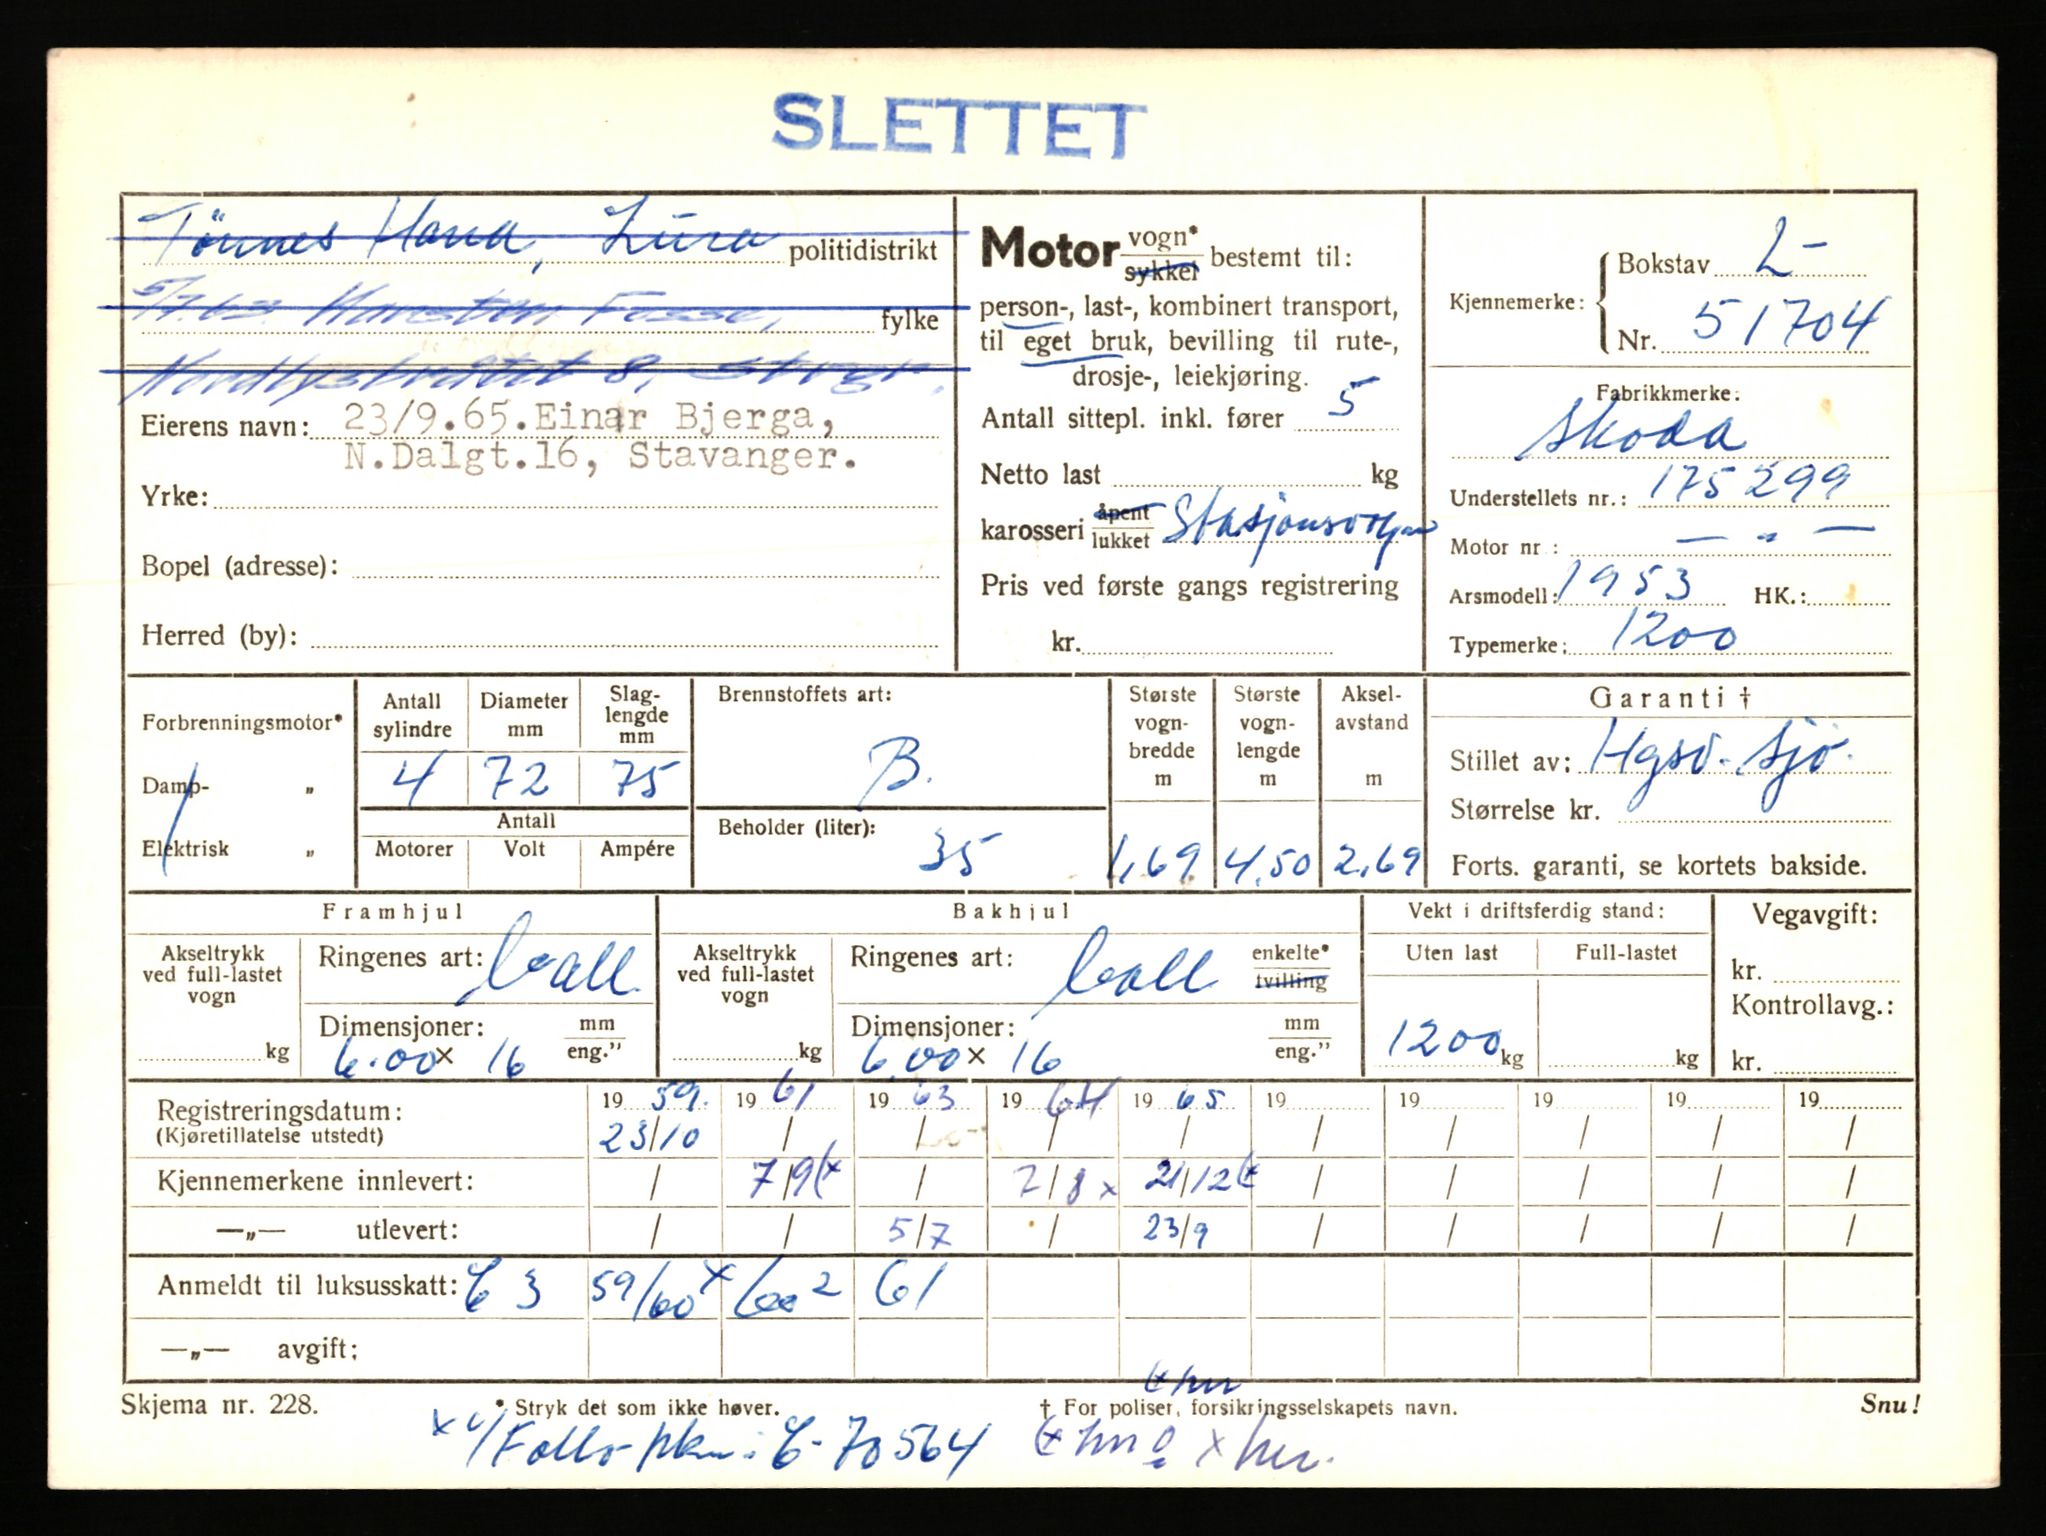 SLETTET
Tønnes Hana, Lura politidistrikt
5/7.63. Fosse, fylke
8, Stvgr.
Eierens navn: 23/9.65. Einar Bjerga,
N.Dalgt.16, Stavanger.
Yrke:
Bopel (adresse):
Herred (by):
Motor vogn* sykkel bestemt til:
person-, last-, kombinert transport,
til eget bruk, bevilling til rute-,
drosje-, leiekjøring.
Antall sittepl. inkl. fører 5
Netto last kg
karosseri åpent lukket Stasjonsvogn
Pris ved første gangs registrering
kr.
Kjennemerke: Bokstav L-
Nr. 51704
Fabrikkmerke:
Skoda
Understellets nr.: 175299
Motor nr: — " —
Arsmodell: 1953 HK.:
Typemerke: 1200
Forbrenningsmotor*
Damp- "
Elektrisk "
Antall sylindre Diameter mm Slag-lengde mm
4 72 75
Antall
Motorer Volt Ampére
Brennstoffets art:
B.
Beholder (liter):
35
Største vogn-bredde m
1,69
Største vogn-lengde m
4,50
Aksel-avstand m
2,69
Garanti †
Stillet av:
Størrelse kr.
Forts. garanti, se kortets bakside.
Framhjul
Akseltrykk ved full-lastet vogn
kg
Ringenes art: Ball
Dimensjoner: mm eng."
6.00 x 16
Bakhjul
Akseltrykk ved full-lastet vogn
kg
Ringenes art: Ball enkelte* tvilling
Dimensjoner: mm eng."
6.00 x 16
Vekt i driftsferdig stand:
Uten last Full-lastet
1200 kg kg
Vegavgift:
kr.
Kontrollavg.:
kr.
Registreringsdatum: 19 59. 19 61 19 63 19 64 19 65 19 19 19 19 19
(Kjøretillatelse utstedt) 23/10 / / / / / / / / /
Kjennemerkene innlevert: / 7/9 (x / 7/8 x 21/12 (x / / / / /
—„— utlevert: / / 5/7 / 23/9 / / / / /
Anmeldt til luksusskatt: 3 59/60 x 60 2 61
—„— avgift:
Skjema nr. 228.
* Stryk det som ikke høver.
† For poliser, forsikringsselskapets navn.
Snu!
70564